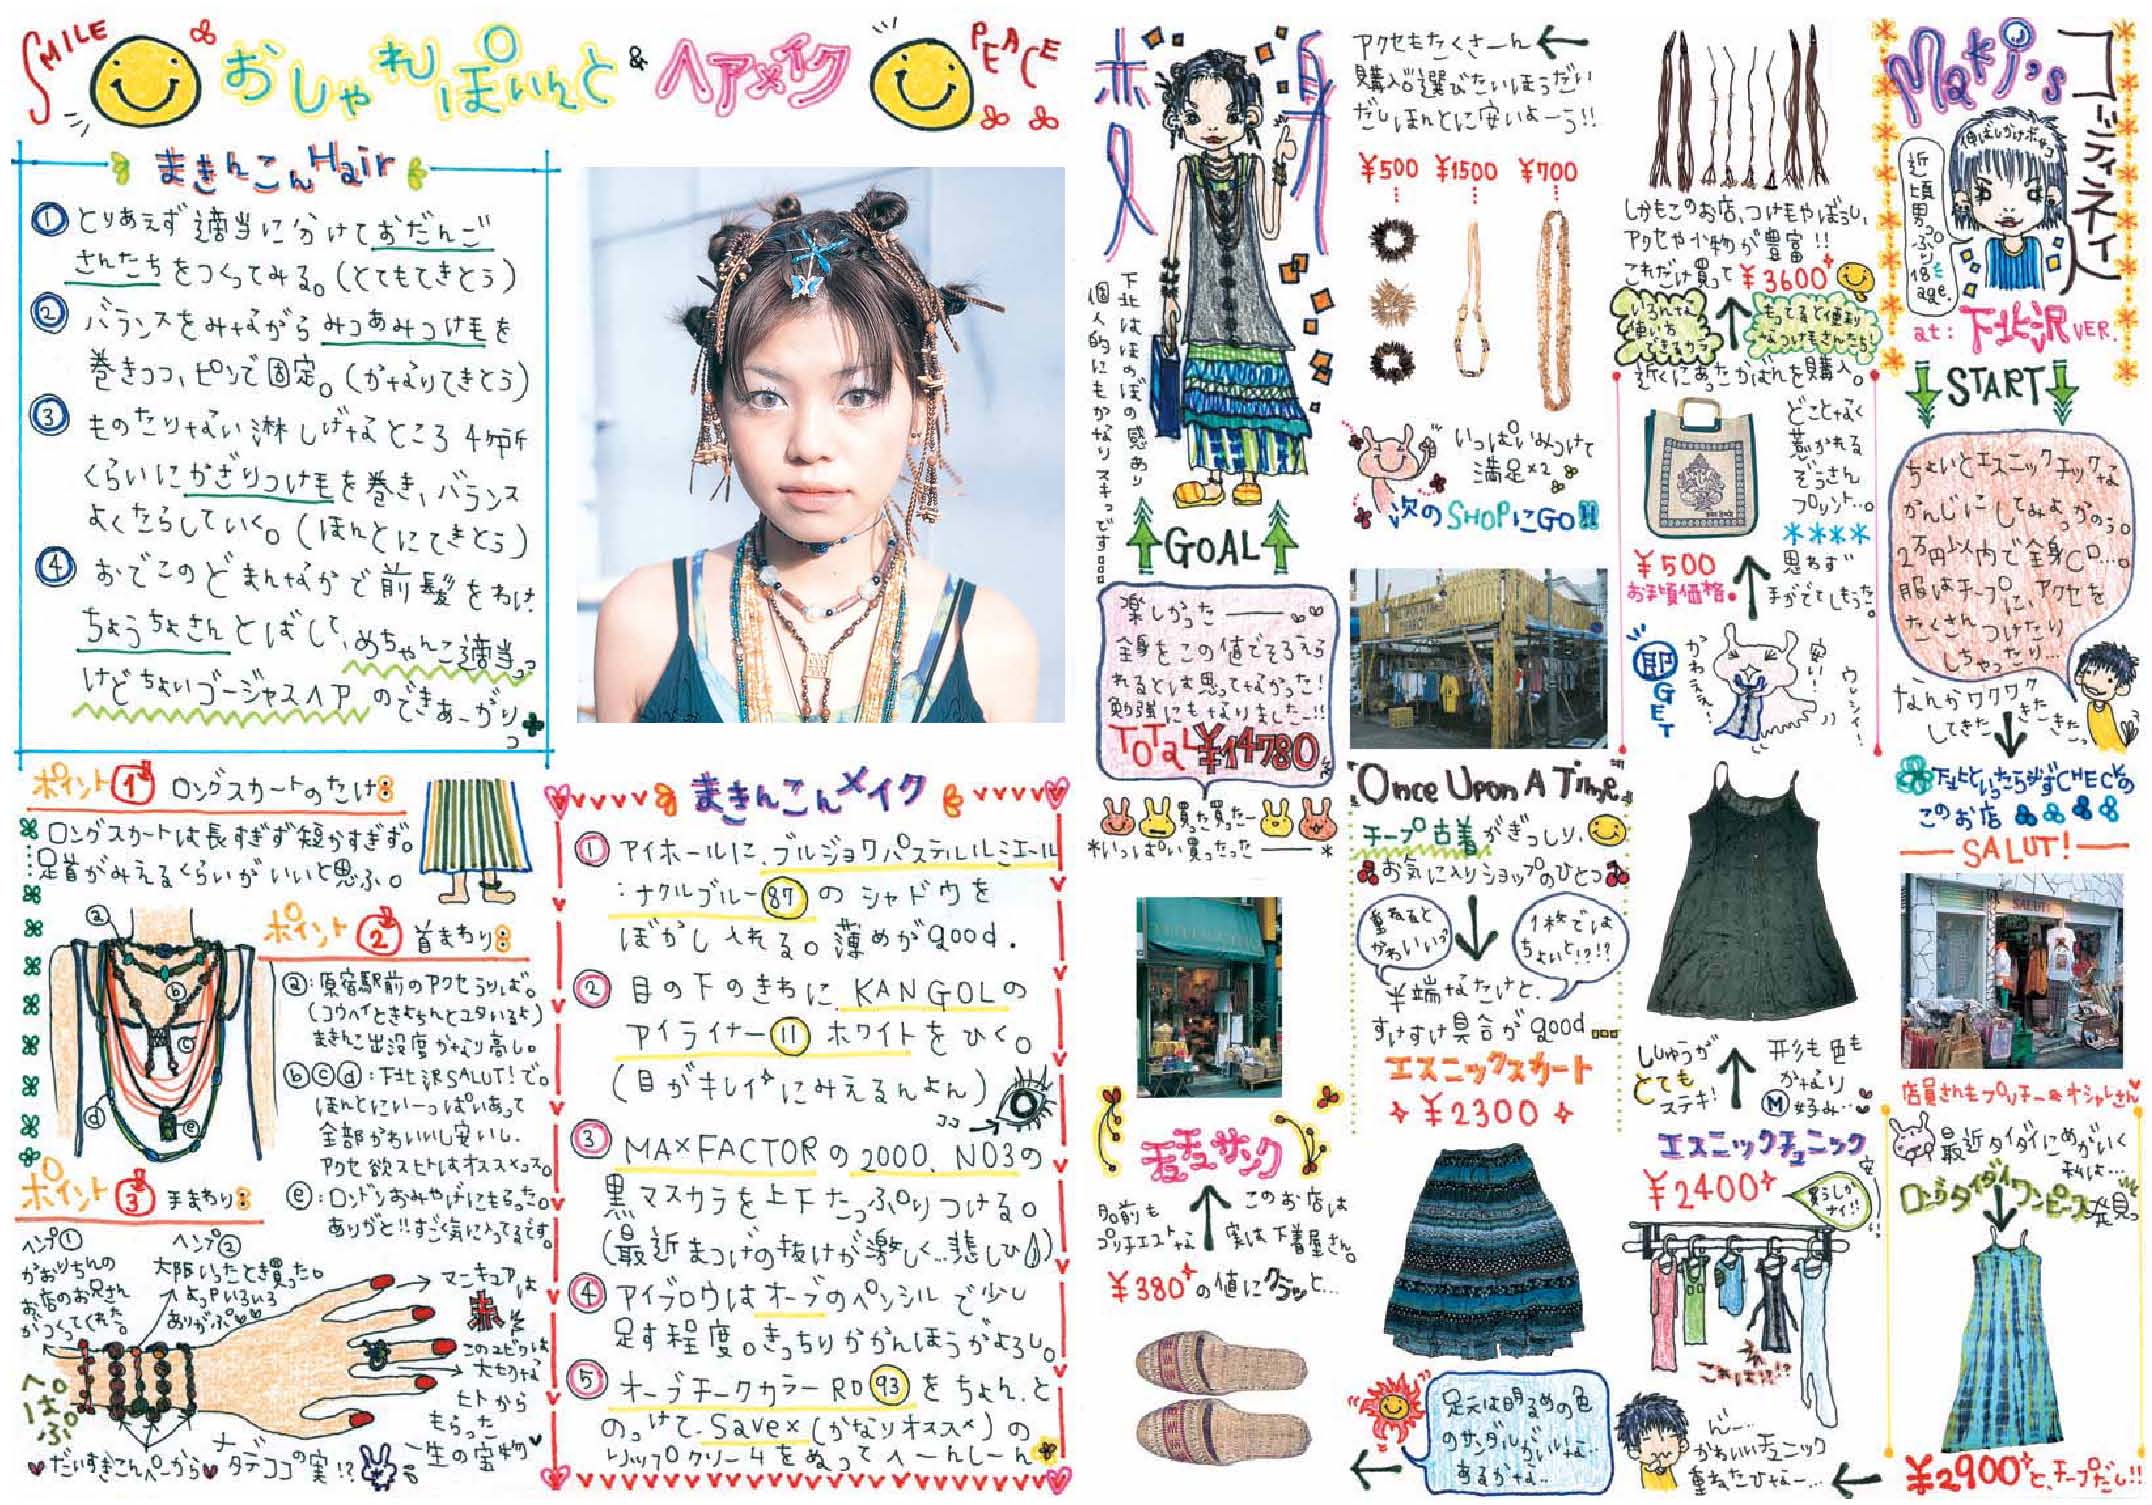 SMILE
おしゃれぽいんと & ヘアメイク
PEACE
まきんこんHair
① とりあえず適当に分けておだんご
さんたちをつくってみる。(とてもてきとう)
② バランスをみながらみつあみつけ毛を
巻きつつ、ピンで固定。(かなりてきとう)
③ ものたりない淋しげなところ4ヶ所
くらいにかざりつけ毛を巻き、バランス
よくたらしていく。(ほんとにてきとう)
④ おでこのどまんなかで前髪をわけ
ちょうちょさんとばして、めちゃんこ適当っ
けどちょいゴージャスヘアのできあーがり
ポイント① ロングスカートのたけ
ロングスカートは長すぎず短かすぎず。
足首がみえるくらいがいいと思ふ。
ポイント② 首まわり
ⓐ ⓑ ⓒ ⓓ ⓔ
ⓐ:原宿駅前のアクセうりしば。
(コウヘイときよちんとユタいるよ)
まきんこ出没度かなり高し。
ⓑⓒⓓ:下北沢SALUT!で。
ほんとにいーっぱいあって
全部かわいいし安いし。
アクセ欲スヒトはオススメっス。
ⓔ:ロンドンおみやげにもらった。
ありがと!!すごく気に入ってるです。
ポイント③ 手まわり
ヘンプ①
かおりちんの
お店のお兄さん
がつくってくれた。
ヘンプ②
大阪いったとき買った。
よっPいろいろ
ありがぷ
マニキュアは
赤
このユビワは
大切な
ヒトから
もらった
一生の宝物
だいすきこんぺーから
ナタデココの実!?
まきんこんメイク
① アイホールに、ブルジョワパステルルミエール
:ナクルブルー87のシャドウを
ぼかし入れる。薄めがgood.
② 目の下のきわにKANGOLの
アイライナー11ホワイトをひく。
(目がキレイにみえるんよん)
ココ→
③ MAXFACTORの2000. NO3の
黒マスカラを上下たっぷりつける。
(最近まつげの抜けが激しく…悲しひ)
④ アイブロウはオーブのペンシルで少し
足す程度。きっちりかかんほうがよろし。
⑤ オーブチークカラーRD93をちょん、と
のっけて、Savex(かなりオススメ)の
リップクリームをぬってへーんしーん
Maki's コーディネイト
伸ばしかけボサ
近頃男っぷり
18才
age.
at:下北沢VER.
START
ちょいとエスニックチックな
かんじにしてみよっかのう。
2万円以内で全身CD…。
服はチープに、アクセを
たくさんつけたり
しちゃったり…
なんかワクワク
してきた きたきたっ
下北といったら必ずCHECKの
このお店
SALUT!
SALUT!
店員さんもプリチー&オシャレさん
最近タイダイにめがいく
私は…
ロングタイダイワンピース発見っ
¥2900と、チープだし!!
ん…
かわいいチュニック
重ねたひなー…
これは!!?
安!!
買うしかナイ!!
エスニックチュニック
¥2400
ししゅうが
とても
ステキ!
形も色も
かなり
Ⓜ好み…
即GET
かわええ!
安い!
ウレシイ!
¥500
お手頃価格。
思わず
手がでてしもうた。
どことなく
惹かれる
ぞうさん
プリント…。
近くにあったかばんを購入。
いろんな
使い方
できるカラ
もってると便利
なつけ毛さんたち!
しかもこのお店、つけ毛やぼうし、
アクセや小物が豊富!!
これだけ買って¥3600
アクセもたくさーん
購入。選びたいほうだい
だし ほんとに安いよーう!!
¥500 ¥1500 ¥700
いっぱいみつけて
満足×2
次のSHOPにGO!!
"Once Upon A Time"
チープ古着がぎっしり、
お気に入りショップのひとつ
重ねると
かわいいっ
1枚では
ちょいと!?!?
半端なたけと、
すけすけ具合がgood…
エスニックスカート
¥2300
足元は明るめの色
のサンダルがいいな…
あるかな…
チュチュサンク
名前も
プリチエストな
このお店は
実は下着屋さん。
¥380の値にクラッと…
赤身
下北はほのぼの感あり
個人的にもかなりスキっです…
GOAL
楽しかったー
全身をこの値でそろえら
れるとは思ってなかった!
勉強にもなりましたー!!
TOTAL¥14780
買った買ったー
*いっぱい買ったった――*